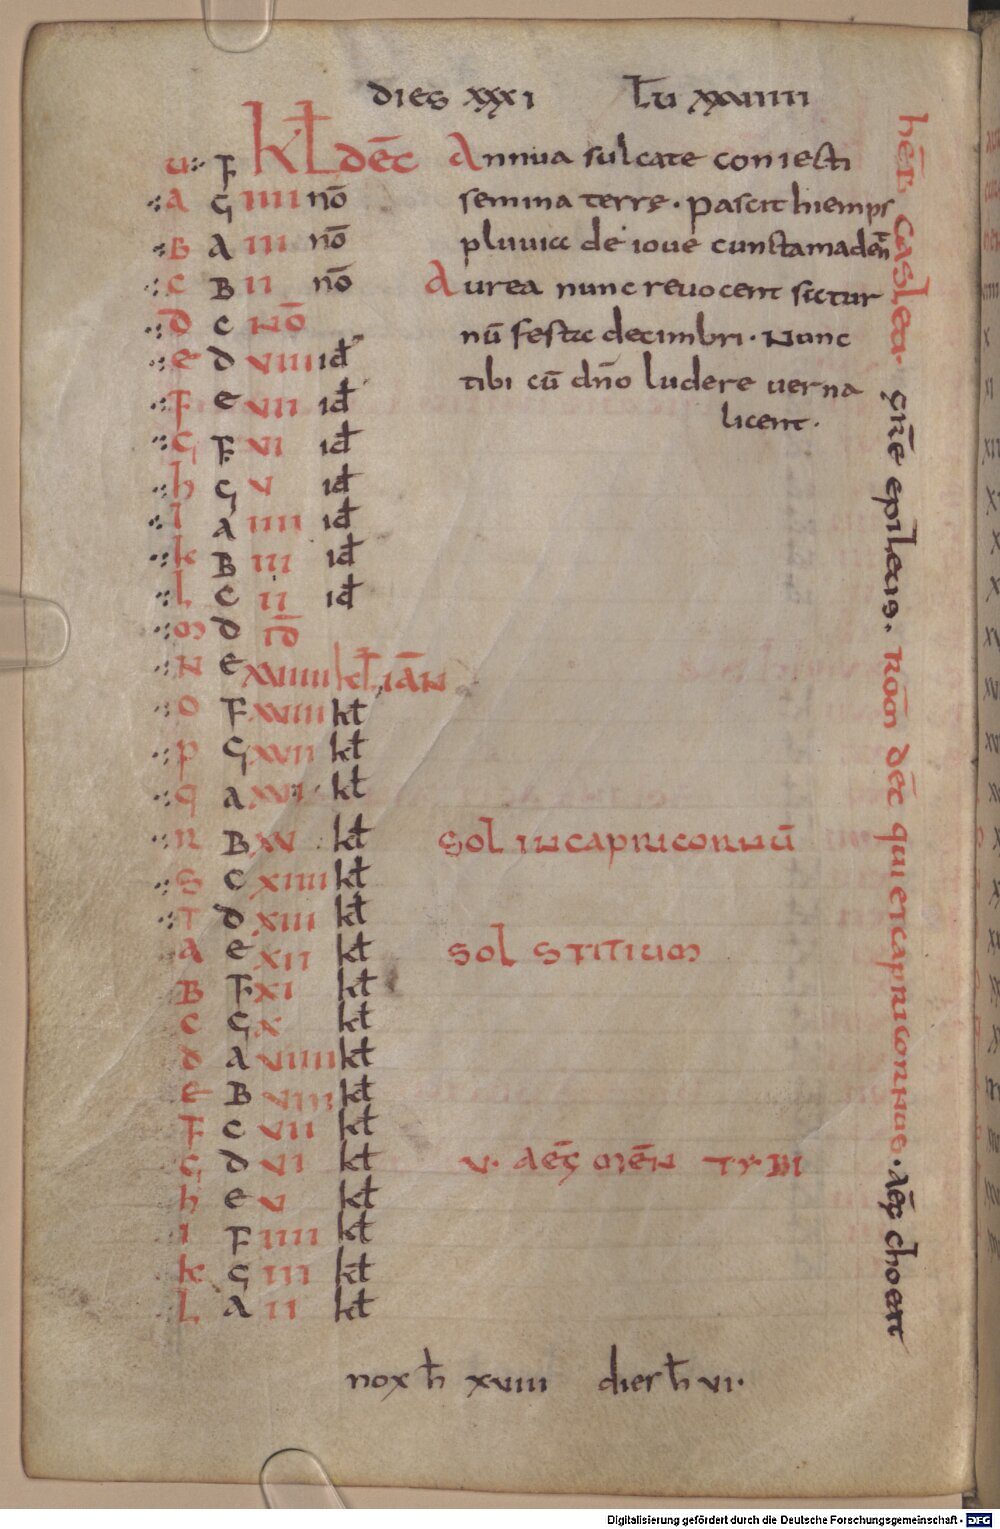 dies xxxi lu xxviiii
u F kl dec Annua sulcate coniecti
A G iiii no semina terre. pascit hiemps
B A iii no pluuia de ioue cunsta maden
C B ii no Aurea nunc reuocent satur
D C NO nu festa decimbri. Nunc
e D viiii id tibi cu dno ludere uerna
F e vii id licent.
G F vi id
h G v id
I A iiii id
k B iii id
L C ii id
M D ID
N e xviiii kl IAN
O F xviii kl
P G xvii kl
q A xvi kl
R B xv kl SOL IN CAPRICORNU
S C xiiii kl
T D xiii kl
A e xii kl SOL STITIUM
B F xi kl
C G x kl
D A viiii kl
E B viii kl
F C vii kl
G D vi kl V. AEG MEN TYBI
h e v kl
I F iiii kl
k G iii kl
L A ii kl
nox h xviii dies h vi.
heb casleu. gre epileus. Rom dec qui et capricornus. aeg choeac
Digitalisierung gefördert durch die Deutsche Forschungsgemeinschaft - DFG